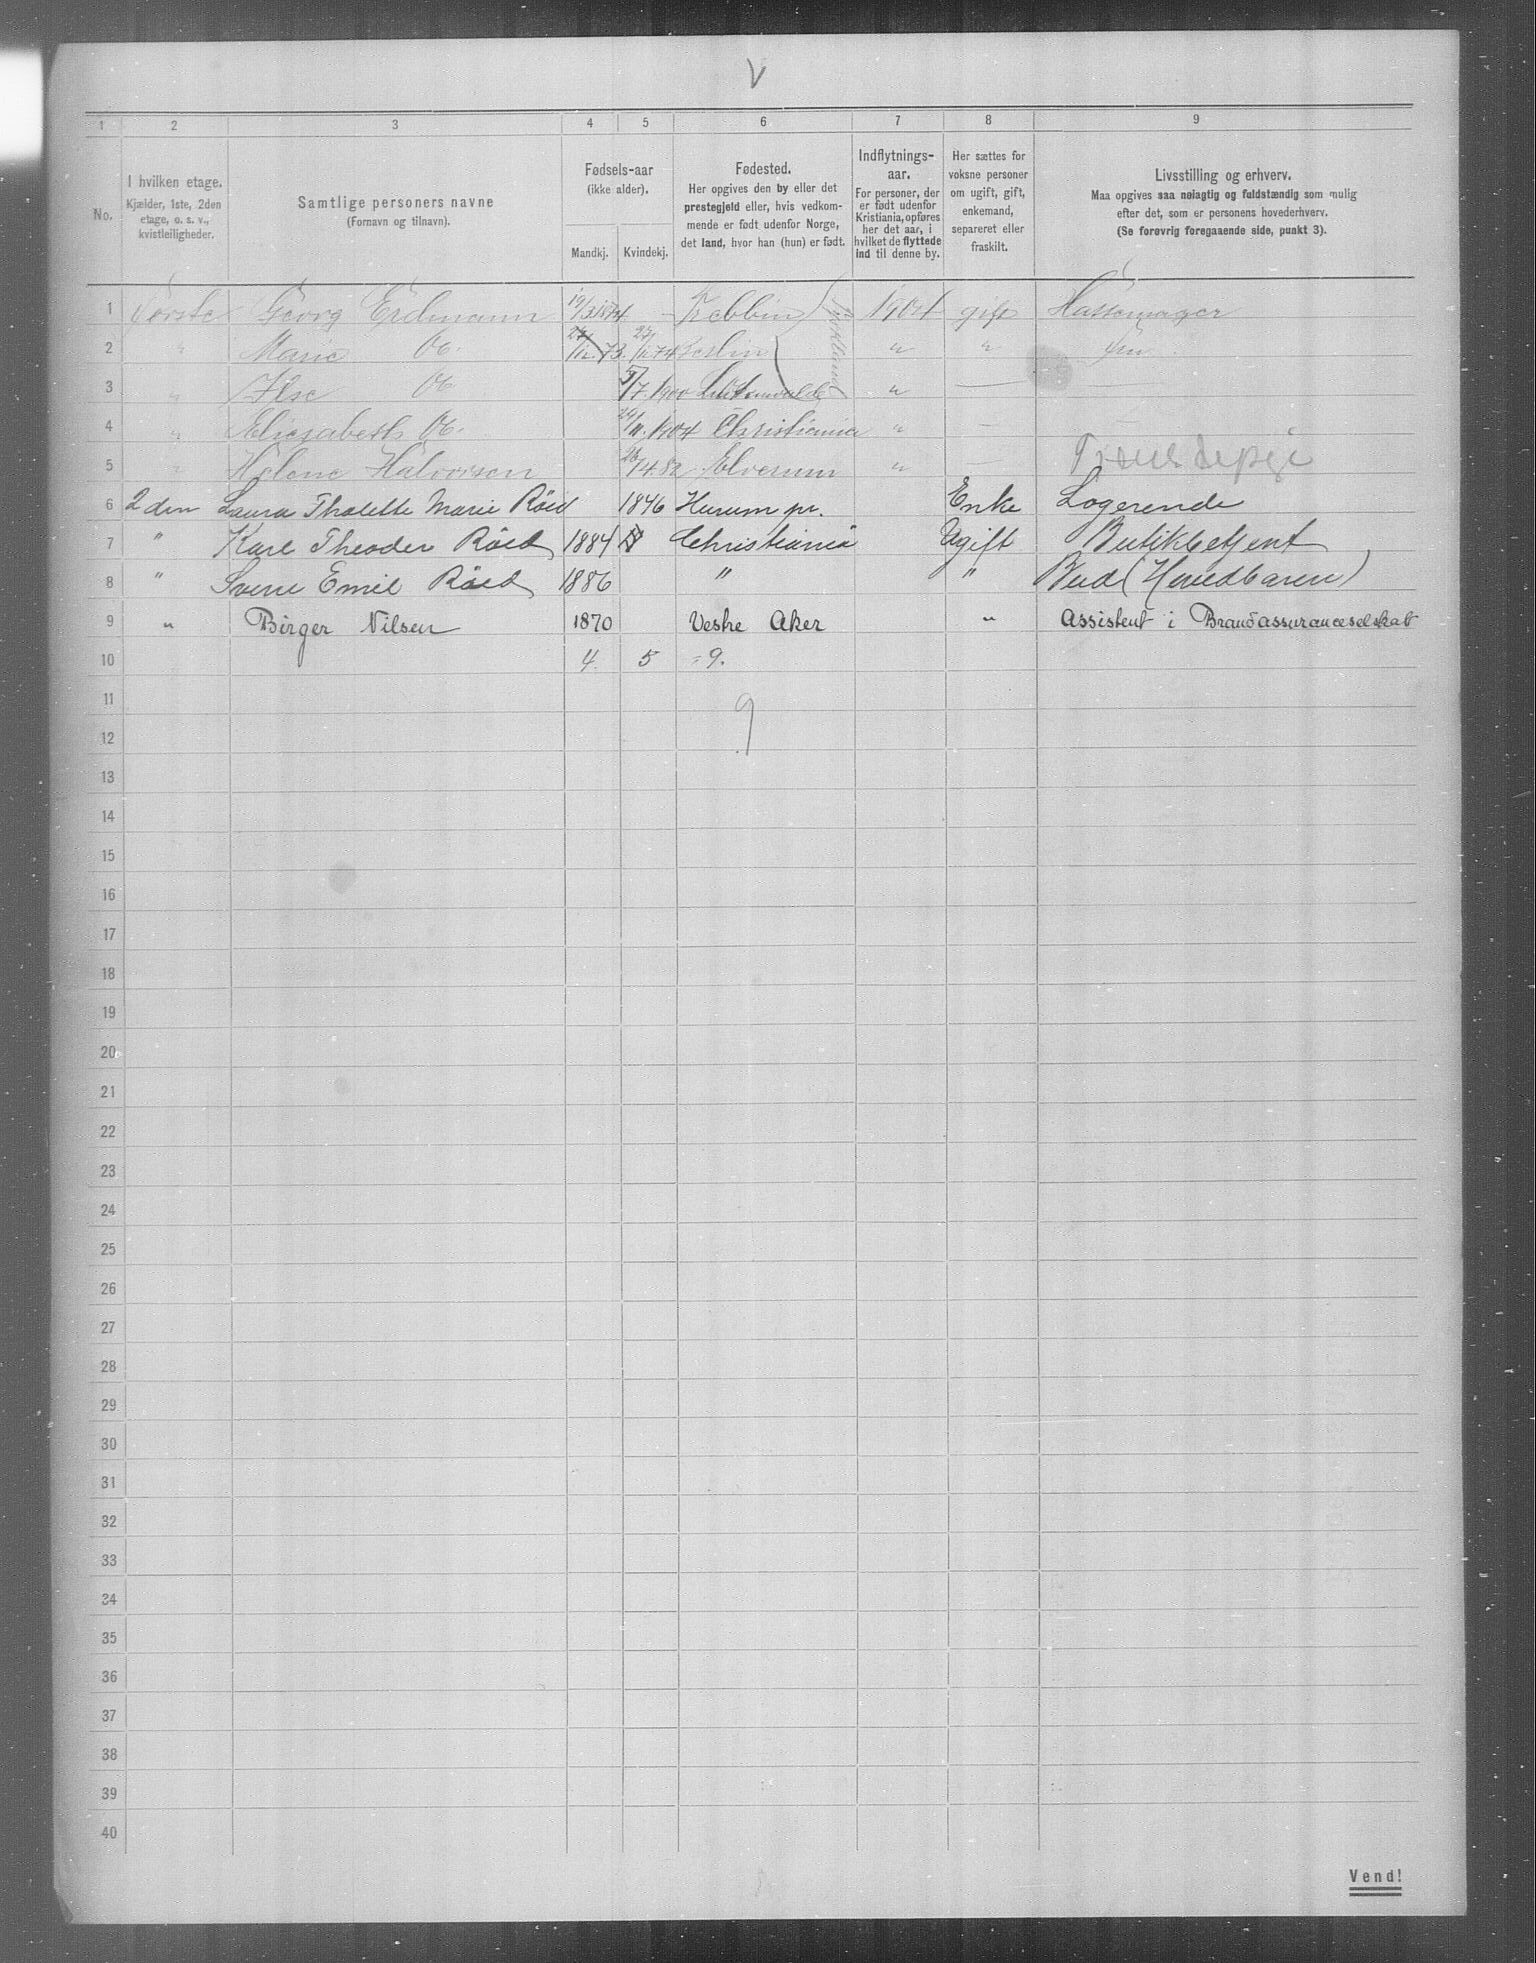 V
1 2 3 4 5 6 7 8 9
No.
I hvilken etage.
Kjælder, 1ste, 2den
etage, o. s. v.,
kvistleiligheder.
Samtlige personers navne
(Fornavn og tilnavn).
Fødsels-aar
(ikke alder).
Mandkj. Kvindekj.
Fødested.
Her opgives den by eller det
prestegjeld eller, hvis vedkom-
mende er født udenfor Norge,
det land, hvor han (hun) er født.
Indflytnings-
aar.
For personer, der
er født udenfor
Kristiania, opføres
her det aar, i
hvilket de flyttede
ind til denne by.
Her sættes for
voksne personer
om ugift, gift,
enkemand,
separeret eller
fraskilt.
Livsstilling og erhverv.
Maa opgives saa nøiagtig og fuldstændig som mulig
efter det, som er personens hovederhverv.
(Se forøvrig foregaaende side, punkt 3).
1 Første Georg Erdmann 19/3 1874 Trebbin 1904 gift
2 " Marie Do. 27/12.73. 27/12 74 Berlin " "
3 " Ilse Do 5/7.1900 Luckenwalde " —
4 " Elisabeth Do. 24/11.1904 Christiania " —
5 " Helene Halvorsen 26/4.82 Elverum " — Tjenestepige
6 2den Laura Thalette Marie Röed 1846 Hurum pr. Enke Logerende
7 " Karl Theodor Röed 1884 Christiania Ugift Butikbetjent
8 " Sverre Emil Röed 1886 " " Bud (Hovedbanen)
9 " Birger Nilsen 1870 Vestre Aker " Assistent i Brandassuranceselskab
10 4. 5 = 9.
11
9
12
13
14
15
16
17
18
19
20
21
22
23
24
25
26
27
28
29
30
31
32
33
34
35
36
37
38
39
40
Vend!